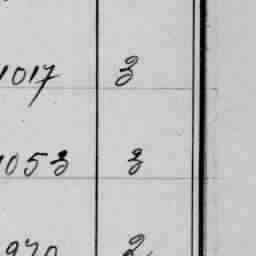 1017 3
1053 3
970 2